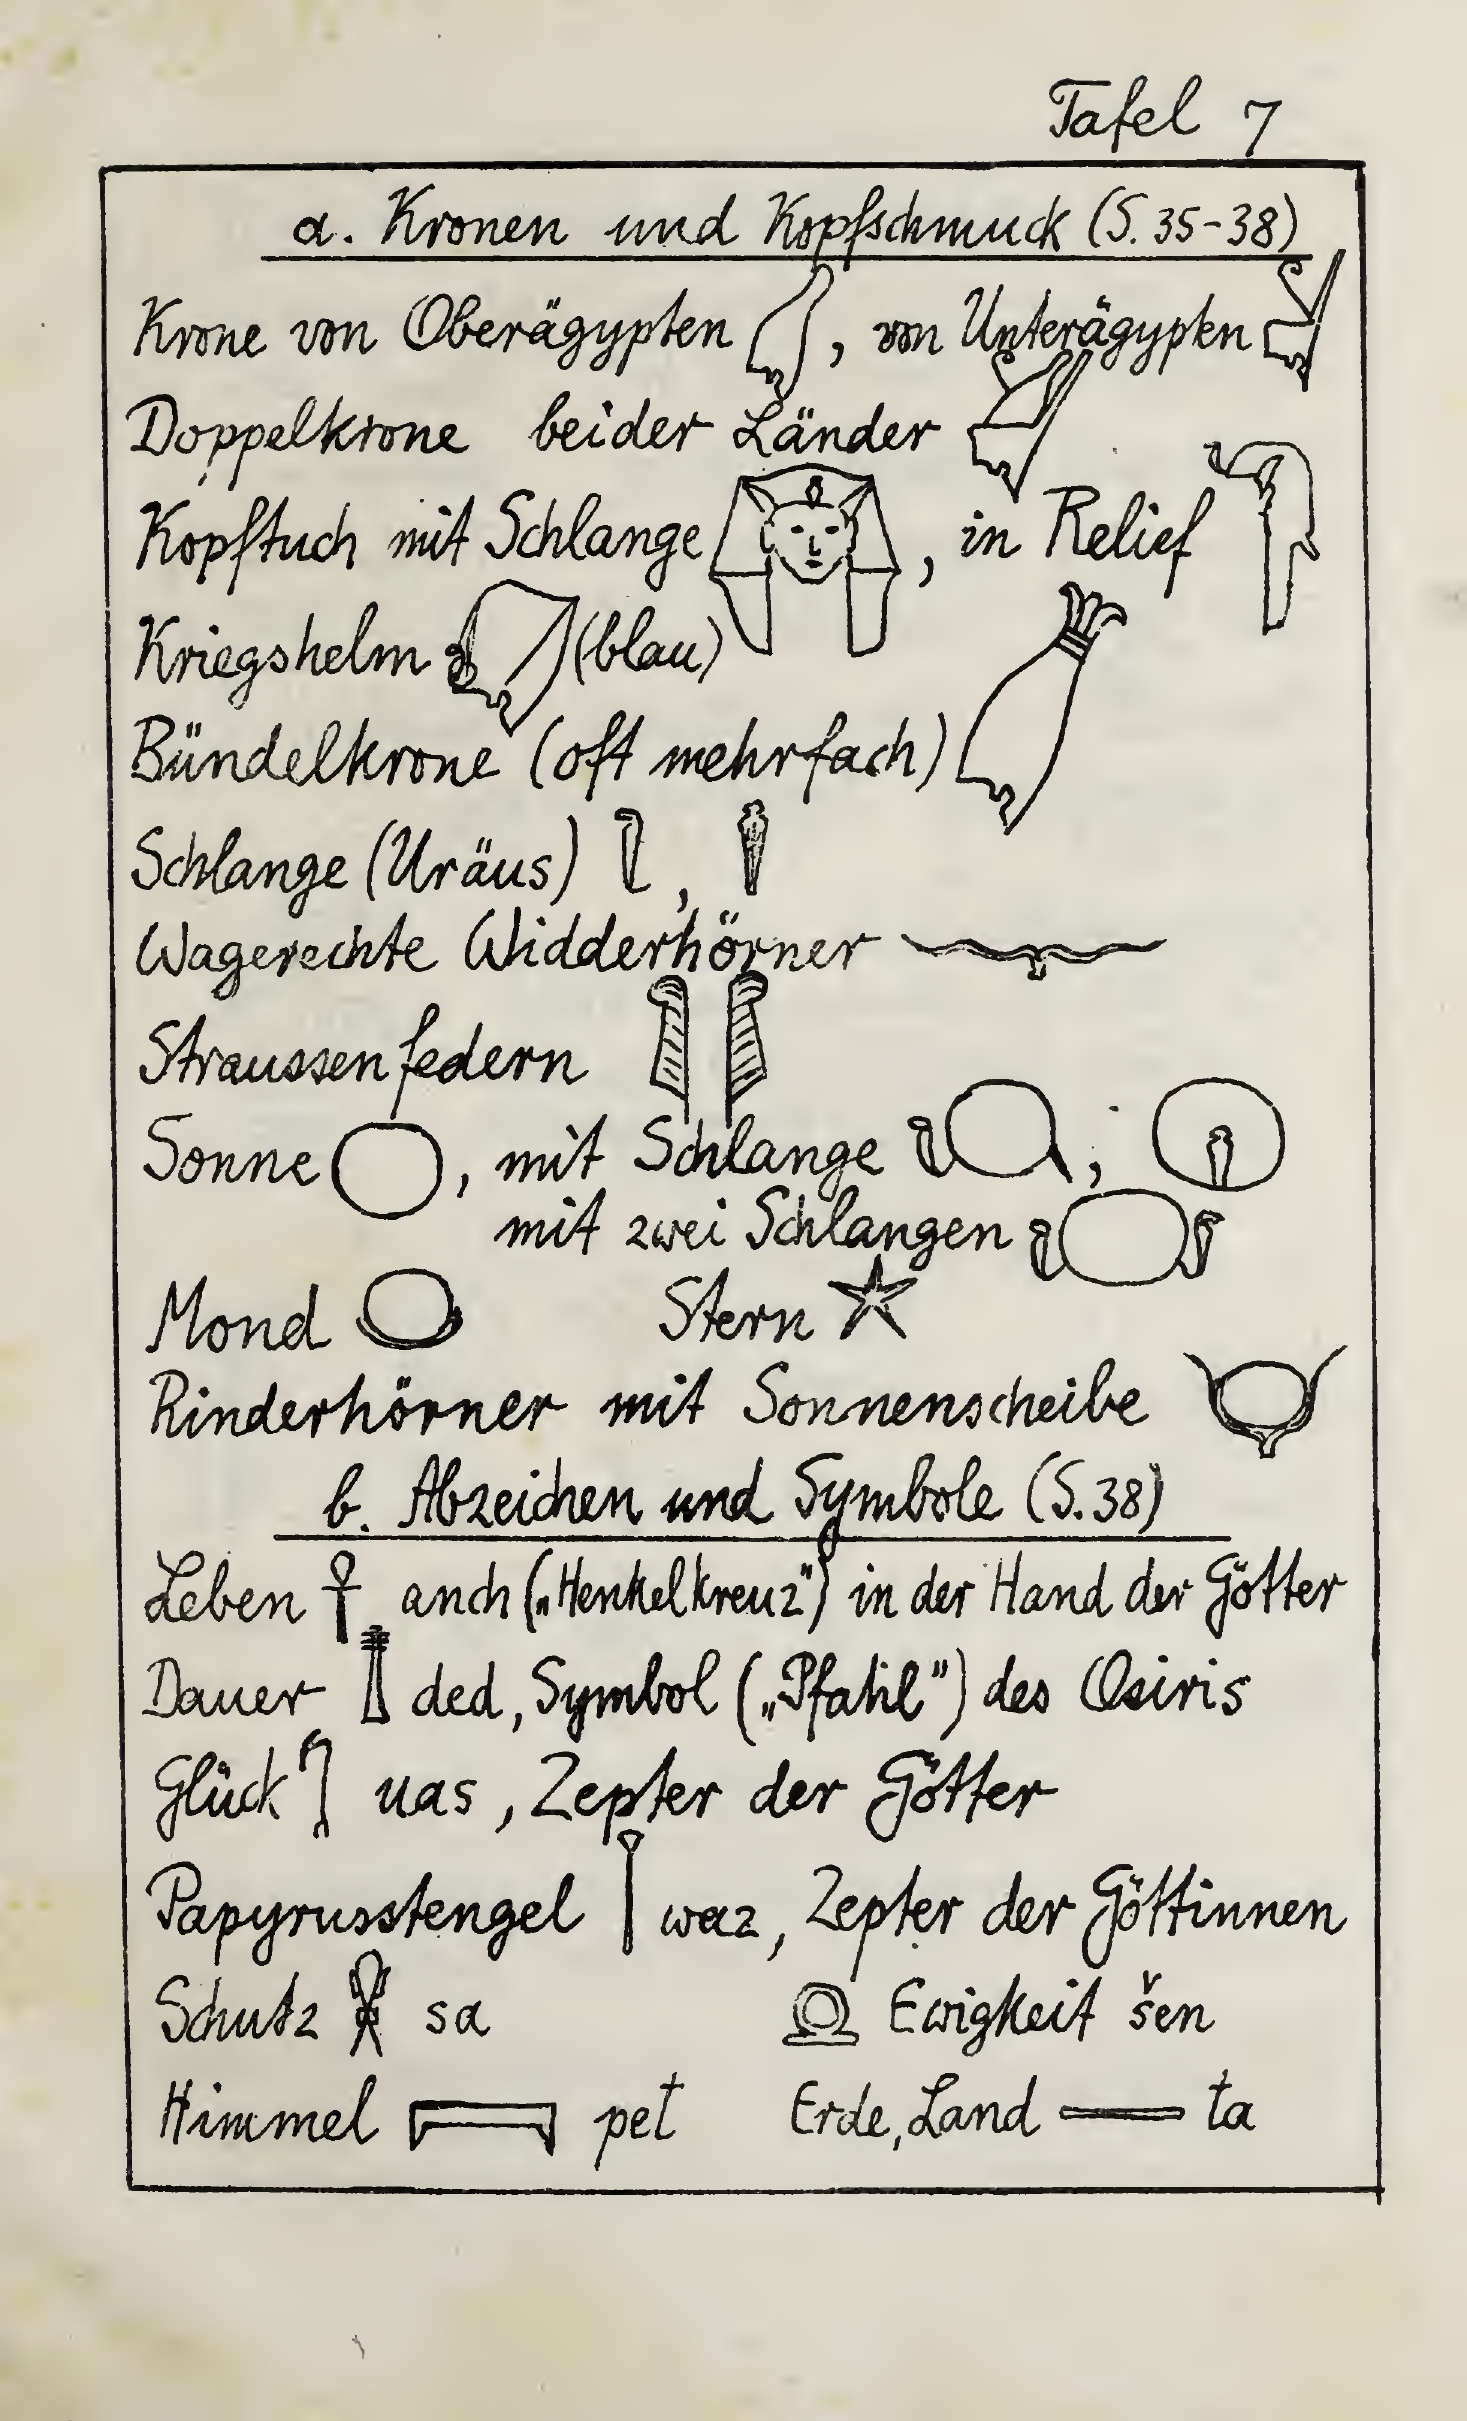 Tafel 7
a. Kronen und Kopfschmuck (S. 35-38)
Krone von Oberägypten , von Unterägypten
Doppelkrone beider Länder
Kopftuch mit Schlange , in Relief
Kriegshelm (blau)
Bündelkrone (oft mehrfach)
Schlange (Uräus) ,
Wagerechte Widderhörner
Straussenfedern
Sonne , mit Schlange ;
mit zwei Schlangen
Mond Stern
Rinderhörner mit Sonnenscheibe
b. Abzeichen und Symbole (S. 38)
Leben anch („Henkelkreuz") in der Hand der Götter
Dauer ded, Symbol („Pfahl") des Osiris
Glück uas, Zepter der Götter
Papyrusstengel waz, Zepter der Göttinnen
Schutz sa Ewigkeit šen
Himmel pet Erde, Land ta